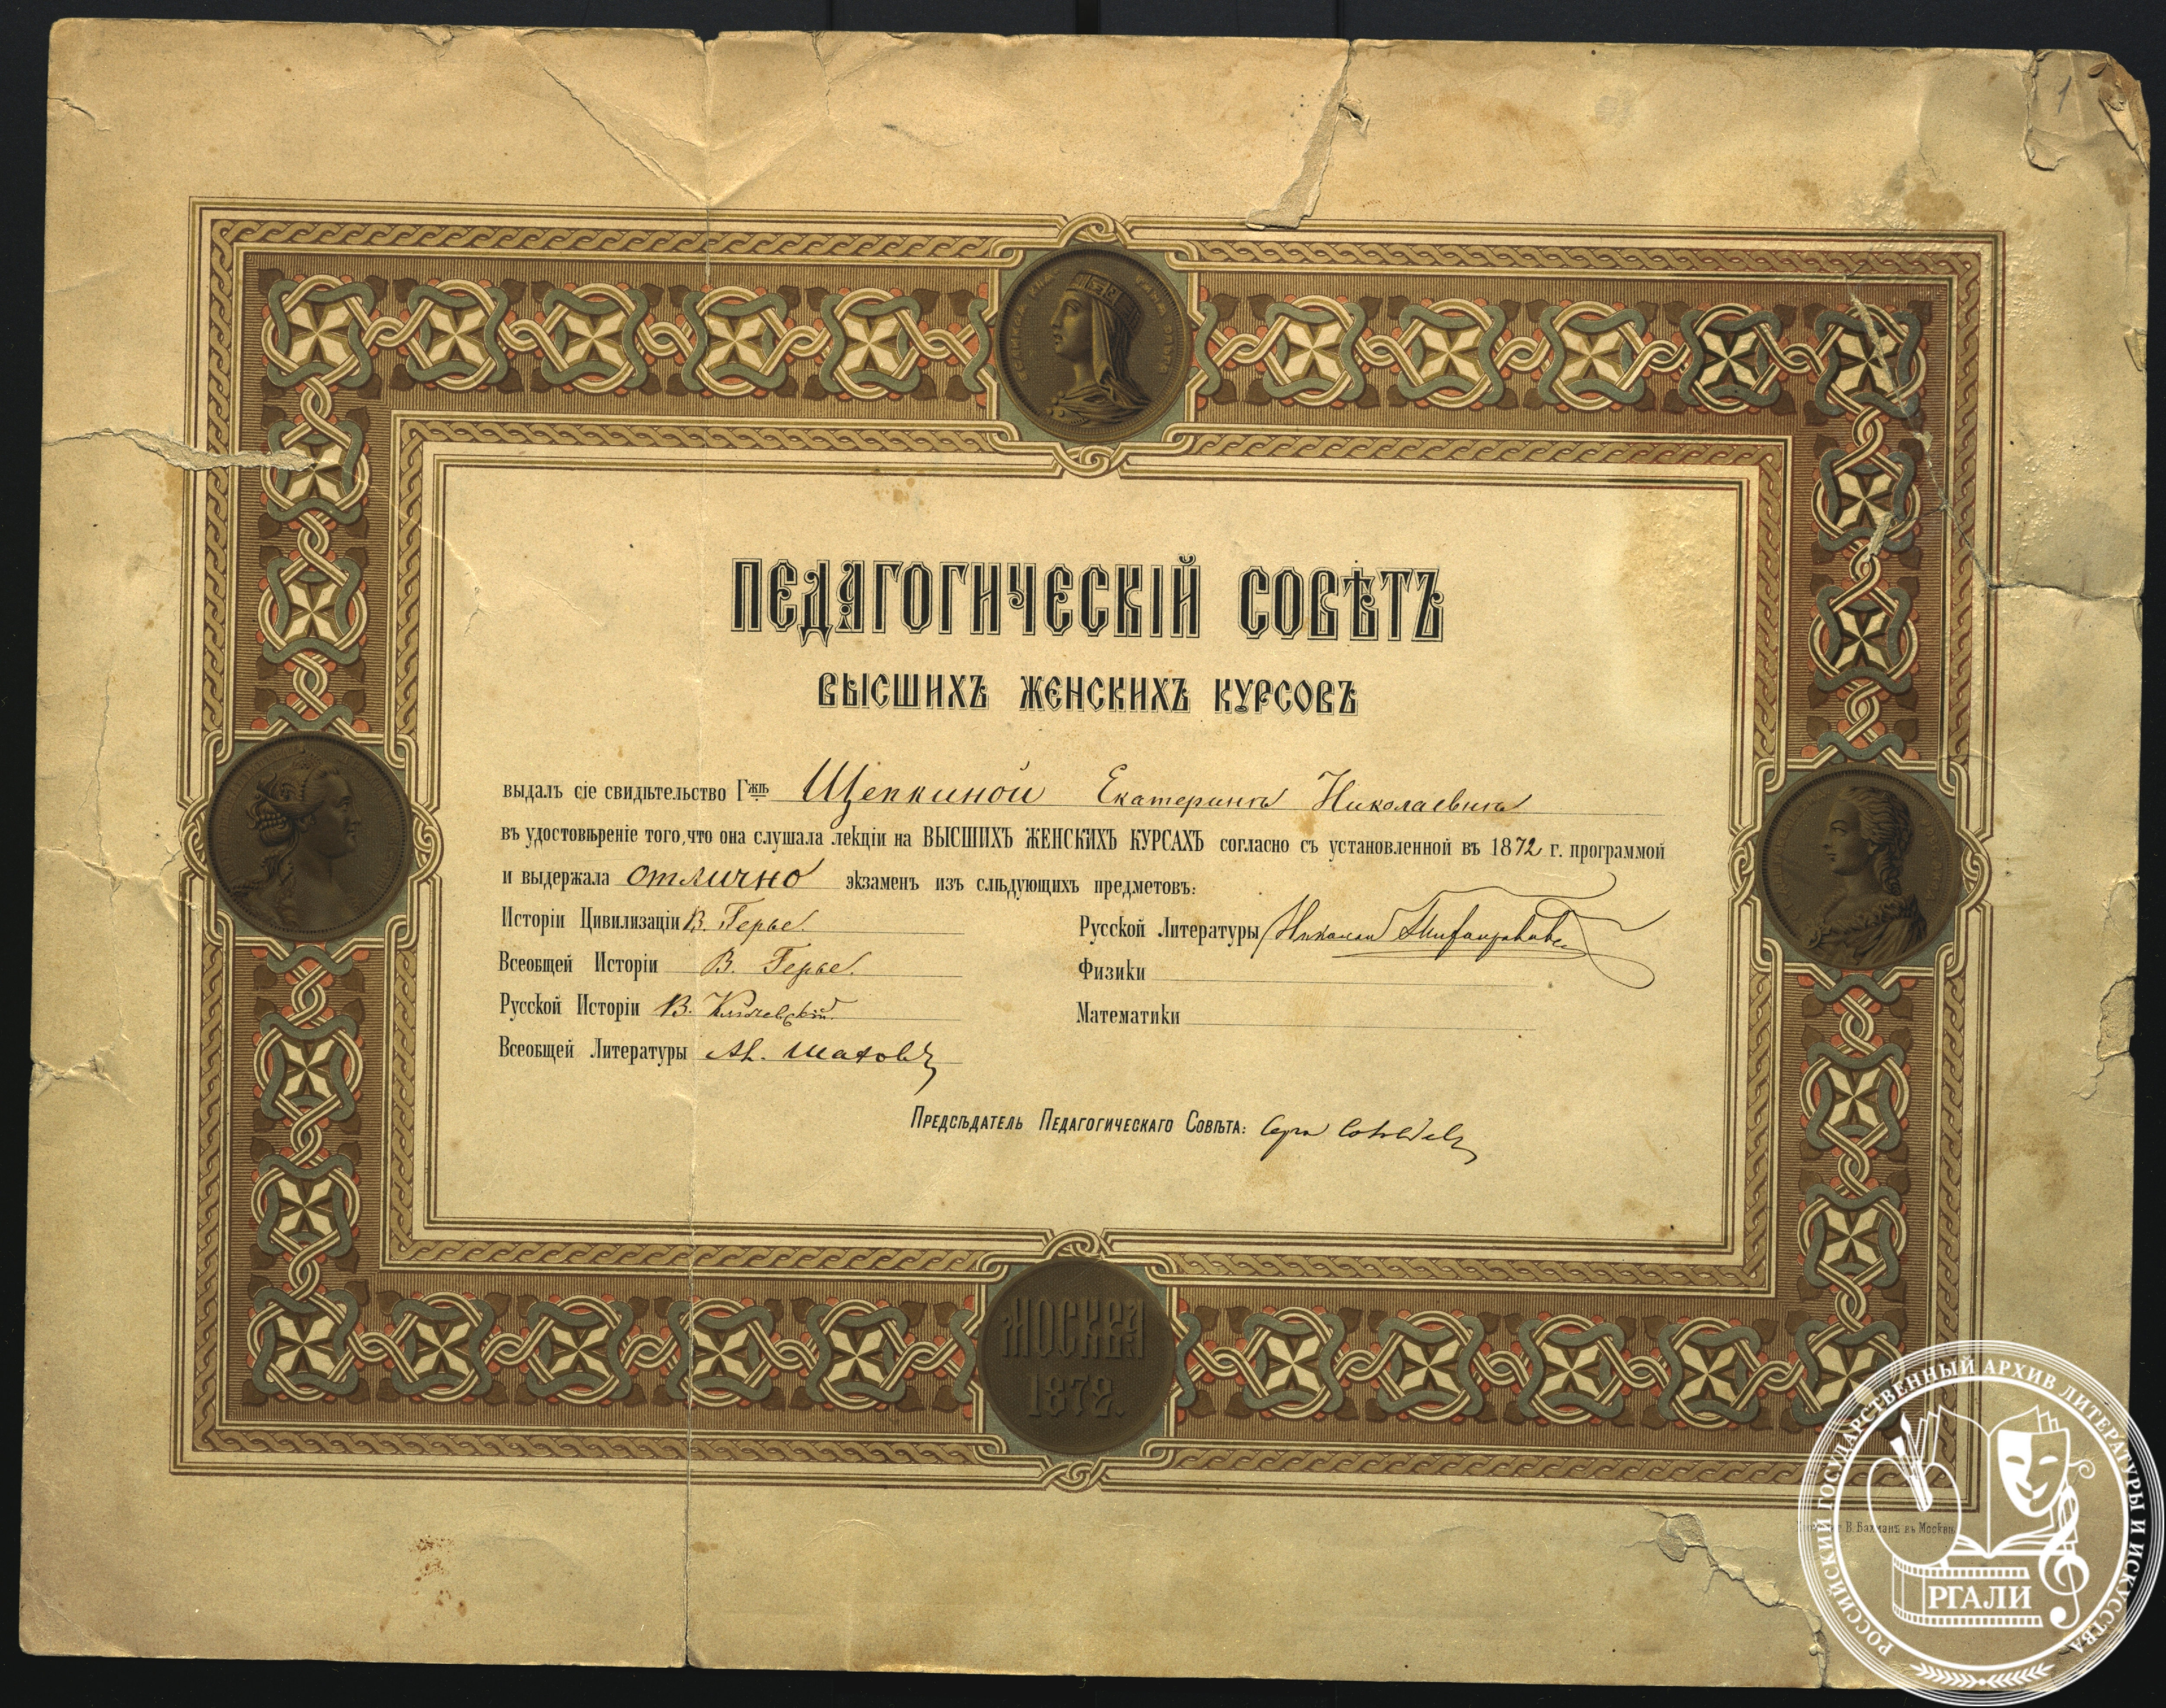 1
ВЕЛИКАЯ КНЯГИНЯ ОЛЬГА
ПЕДАГОГИЧЕСКІЙ СОВѢТЪ
ВЫСШИХЪ ЖЕНСКИХЪ КУРСОВЪ
выдалъ сіе свидѣтельство Гжѣ Щепкиной Екатеринѣ Николаевнѣ
въ удостовѣреніе того, что она слушала лекціи на ВЫСШИХЪ ЖЕНСКИХЪ КУРСАХЪ согласно съ установленной въ 1872 г. программой
и выдержала отлично экзаменъ изъ слѣдующихъ предметовъ:
Исторіи Цивилизаціи В. Герье.
Всеобщей Исторіи В. Герье.
Русской Исторіи В. Ключевскій.
Всеобщей Литературы Ал. Шаховъ
Русской Литературы Николай Тихонравовъ
Физики
Математики
Предсѣдатель Педагогическаго Совѣта: Сергѣй Соловьевъ
МОСКВА
1872.
В. Бахманъ въ Москвѣ
РОССИЙСКИЙ ГОСУДАРСТВЕННЫЙ АРХИВ ЛИТЕРАТУРЫ И ИСКУССТВА
РГАЛИ